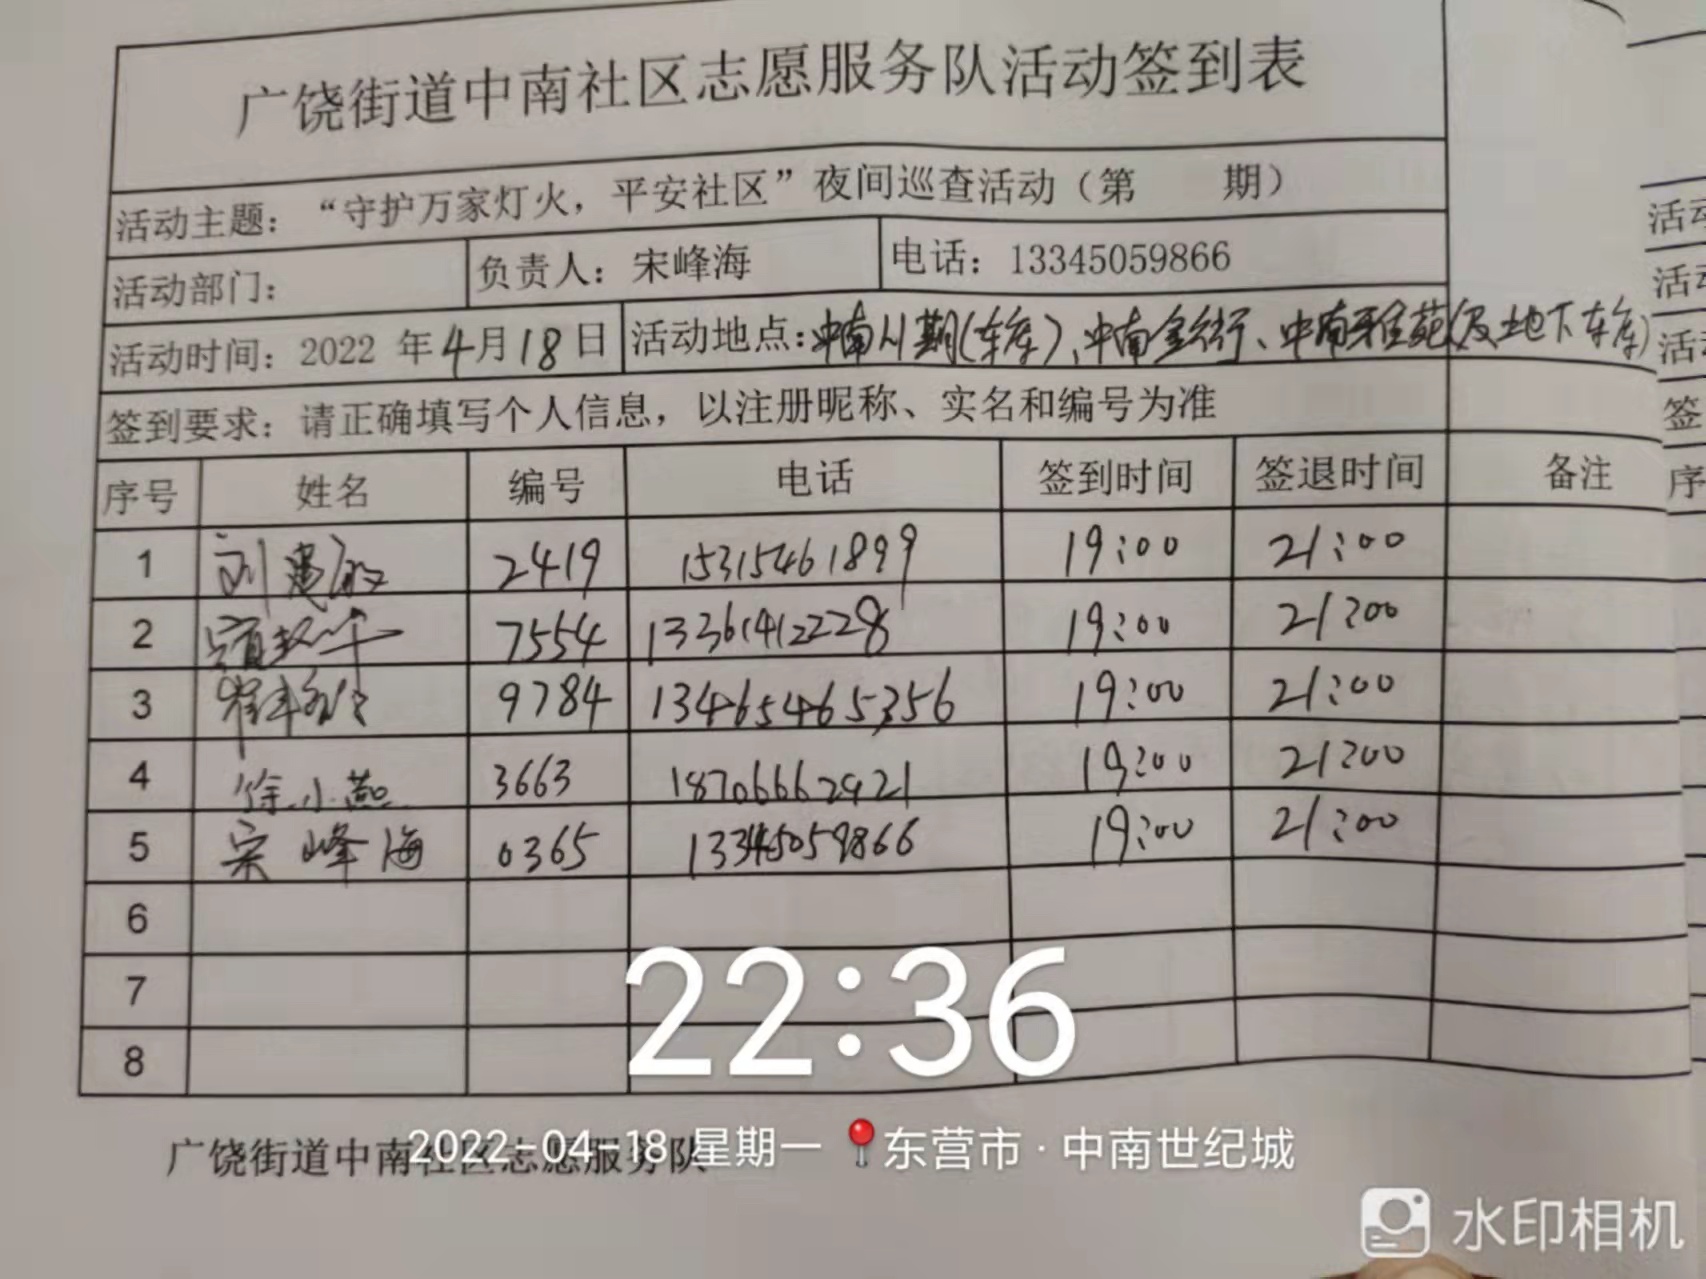 广饶街道中南社区志愿服务队活动签到表
活动主题：“守护万家灯火，平安社区”夜间巡查活动（第 期）
活动部门： 负责人：宋峰海 电话：13345059866
活动时间：2022 年4月18日 活动地点：中南川期(车库)、中南金街、中南雅苑(及地下车库)
签到要求：请正确填写个人信息，以注册昵称、实名和编号为准
序号 姓名 编号 电话 签到时间 签退时间 备注
1 刘 2419 15315461899 19:00 21:00
2 7554 13361412228 19:00 21:00
3 9784 13465465356 19:00 21:00
4 徐小燕 3663 18706662921 19:00 21:00
5 宋峰海 0365 13345059866 19:00 21:00
6
7
8
22:36
广饶街道中南社区志愿服务队
2022-04-18 星期一 东营市·中南世纪城
水印相机
活动
活动
活动
签
序